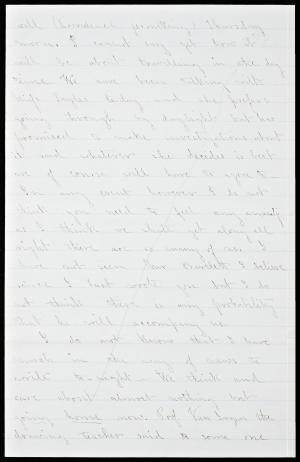 will (Providence permitting) Thursday
morn. I cannot say yet how it
will be about travelling in the day
time. We have been talking with
Miss today and she prefers
going through by daylight but has
promised to make investigations about
it and whatever she decides is best
we of course will have to agree to –
In any event however I do not
think you need to feel any anxiety
as I think we shall get along all
right there are so many of us. I
have not seen Mr I believe
since I last wrote you but I do
not think there is any probability
that he will accompany us
I do not know that I have
much in the way of news to
write to-night – We think and
care about almost nothing but
going home now. Prof Van the
drawing teacher said to some one